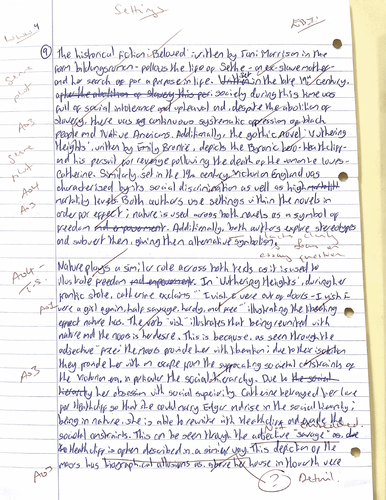 Settings
Q
The historical fiction 'Beloved' written by Toni Morrison in the
form bildungsroman - follows the life of Sethe - an ex-slave mother -
and her search of for a purpose in life. Set in the late 19th century,
after the abolition of slavery this per. society during this time was
full of social intolerence and upheaval and, despite the abolition of
slavery, there was continuous systematic oppression of black
people and Native Americans. Additionally, the gothic novel 'Wuthering
Heights', written by Emily Brontë, depicts the Byronic hero - Heathcliff -
and his pursuit for revenge following the death of the innate lovers -
Catherine. Similarly, set in the 19th century, Victorian England was
characterised by its social discrimination as well as high
mortality levels. Both authors use settings within the novels in
order for effect; nature is used across both novels as a symbol of
freedom and empowerment. Additionally, both authors explore stereotypes
and subvert them, giving them alternative symbolism.
essay question
A04 -
T.S.
Nature plays a similar role across both texts as it is used to
illustrate freedom and empowerment. In 'Wuthering Heights', during her
frantic state, Catherine exclaims "I wish I were out of doors - I wish I
were a girl again, half savage, hardy, and free" illustrating the
effect nature has. The verb "wish" illustrates that being reunited with
nature and the moors is her desire. This is because, as seen through the
adjective "free", the moors provide her with liberation; due to their isolation
they provide her with an escape from the suffocating social constraints of
the Victorian era, in particular the social hierarchy. Due to the social
hierarchy her obsession with social superiority, Catherine betrayed her love
for Heathcliff so that she could marry Edgar and rise in the social hierarchy;
being in nature, she is able to reunite with Heathcliff and outside the
societal constraints. This can be seen through the adjective "savage" as,
Heathcliff is often described in a similar way. This depiction of the
moors has biographical allusions as, where her house in Haworth were
A03
A03
A03
? Detail.